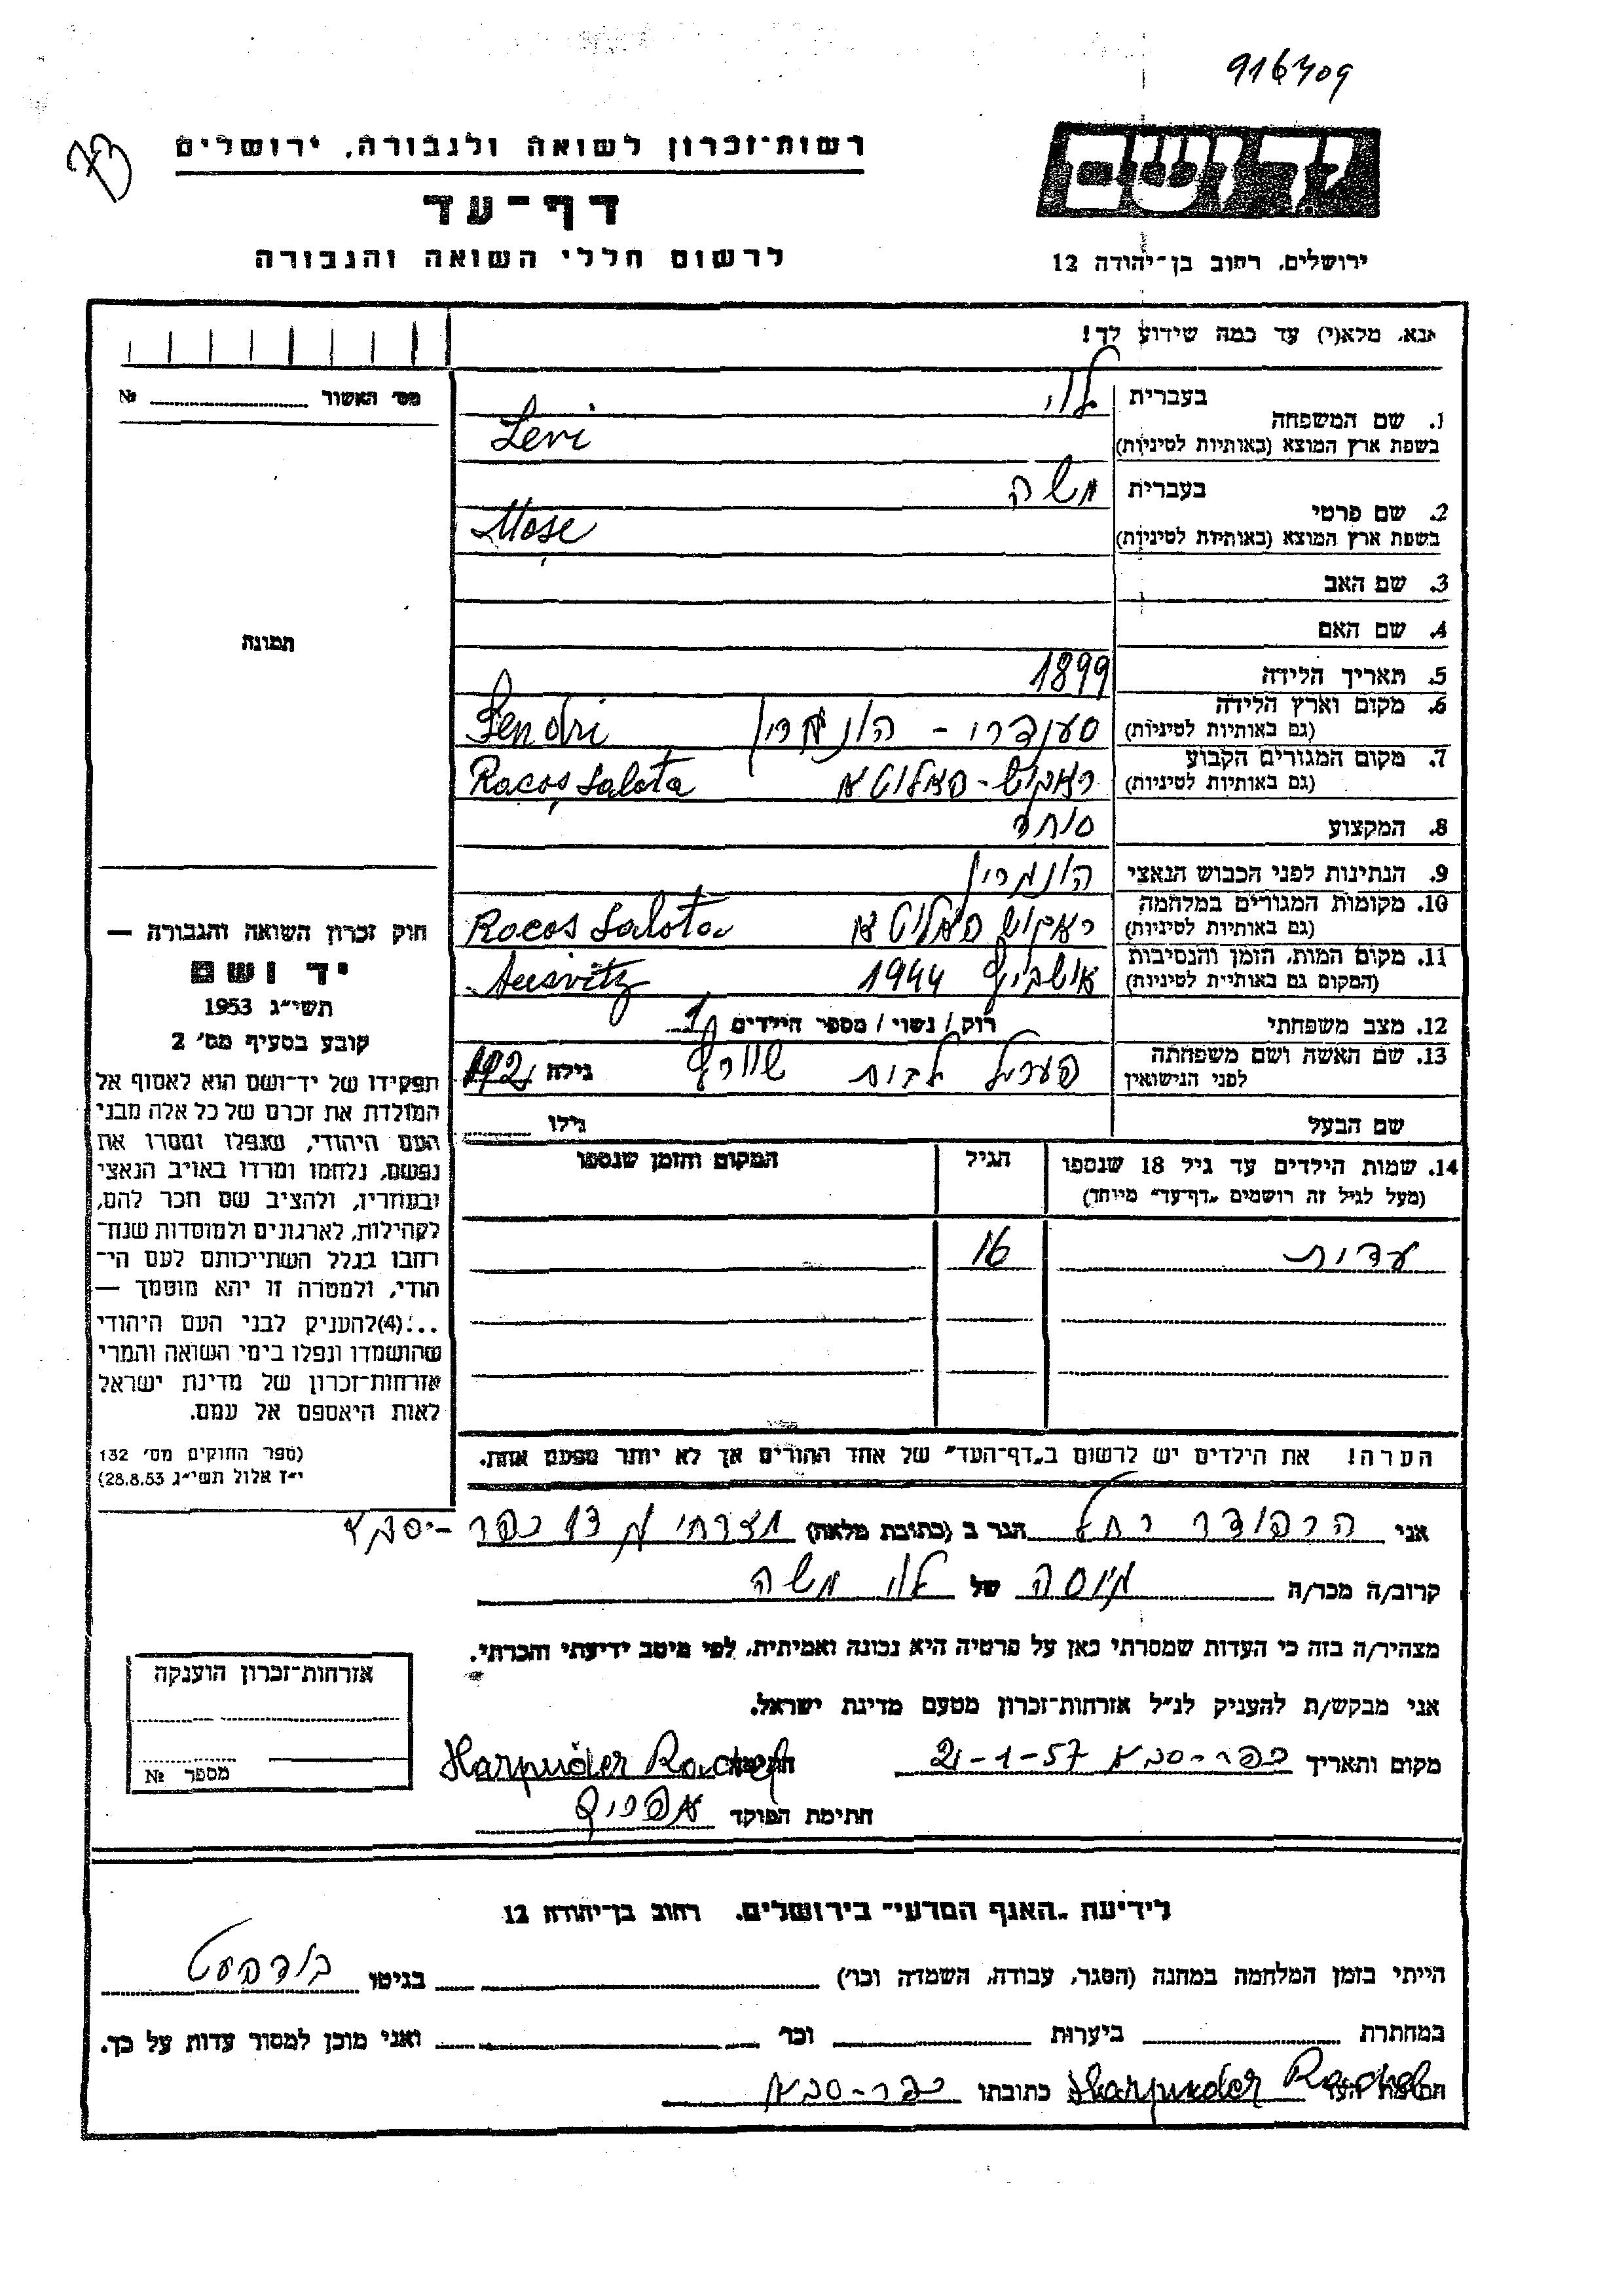 916709
73
רשות־זכרון לשואה ולגבורה, ירושלים
דף־עד
לרשום חללי השואה והגבורה
ירושלים, רחוב בן־יהודה 12
אנא, מלא(י) עד כמה שידוע לך!
מס׳ האשור № 
1. שם המשפחה בעברית לוי
בשפת ארץ המוצא (באותיות לטיניות) Levi
2. שם פרטי בעברית משה
בשפת ארץ המוצא (באותיות לטיניות) Mose
3. שם האב
4. שם האם
תמונה
5. תאריך הלידה 1899
6. מקום וארץ הלידה
(גם באותיות לטיניות) Sendri
7. מקום המגורים הקבוע
(גם באותיות לטיניות) ראקוש-פאלוטא
8. המקצוע סוחר
9. הנתינות לפני הכבוש הנאצי
10. מקומות המגורים במלחמה
(גם באותיות לטיניות) ראקוש פאלוטא
11. מקום המות, הזמן והנסיבות
(המקום גם באותיות לטיניות) אושביץ 1944 Ausvitz
12. מצב משפחתי רוק / נשוי / מספר הילדים 1
13. שם האשה ושם משפחתה
לפני הנישואין שוורץ גילה
שם הבעל גילו
14. שמות הילדים עד גיל 18 שנספו
(מעל לגיל זה רושמים „דף־עד״ מיוחד)
הגיל
המקום והזמן שנספו
16
הערה! את הילדים יש לרשום ב„דף־העד״ של אחד ההורים אך לא יותר מפעם אחת.
חוק זכרון השואה והגבורה —
יד ושם
תשי״ג 1953
קובע בסעיף מס׳ 2
תפקידו של יד־ושם הוא לאסוף אל
המולדת את זכרם של כל אלה מבני
העם היהודי, שנפלו ומסרו את
נפשם, נלחמו ומרדו באויב הנאצי
ובעוזריו, ולהציב שם וזכר להם,
לקהילות, לארגונים ולמוסדות שנח־
רבו בגלל השתייכותם לעם הי־
הודי, ולמטרה זו יהא מוסמך —
...(4) להעניק לבני העם היהודי
שהושמדו ונפלו בימי השואה והמרי
אזרחות־זכרון של מדינת ישראל
לאות היאספם אל עמם.
(ספר החוקים מס׳ 132
י״ז אלול תשי״ג 28.8.53)
אני הרפודר רחל הגר ב (כתובת מלאה) מזרחי כפר-סבא
קרוב/ה מכר/ה של לוי משה
מצהיר/ה בזה כי העדות שמסרתי כאן על פרטיה היא נכונה ואמיתית, לפי מיטב ידיעתי והכרתי.
אני מבקש/ת להעניק לנ״ל אזרחות־זכרון מטעם מדינת ישראל.
מקום ותאריך כפר-סבא 21-1-57 חתימה Harpuder Rachel
חתימת הפוקד
אזרחות־זכרון הוענקה
מספר №
לידיעת „האגף המדעי״ בירושלים, רחוב בן־יהודה 12
הייתי בזמן המלחמה במחנה (הסגר, עבודה, השמדה וכו׳) בגיטו בודפעסט
במחתרת ביערות וכו׳ ואני מוכן למסור עדות על כך.
חתימת העד Harpuder Rachel כתובתו כפר-סבא